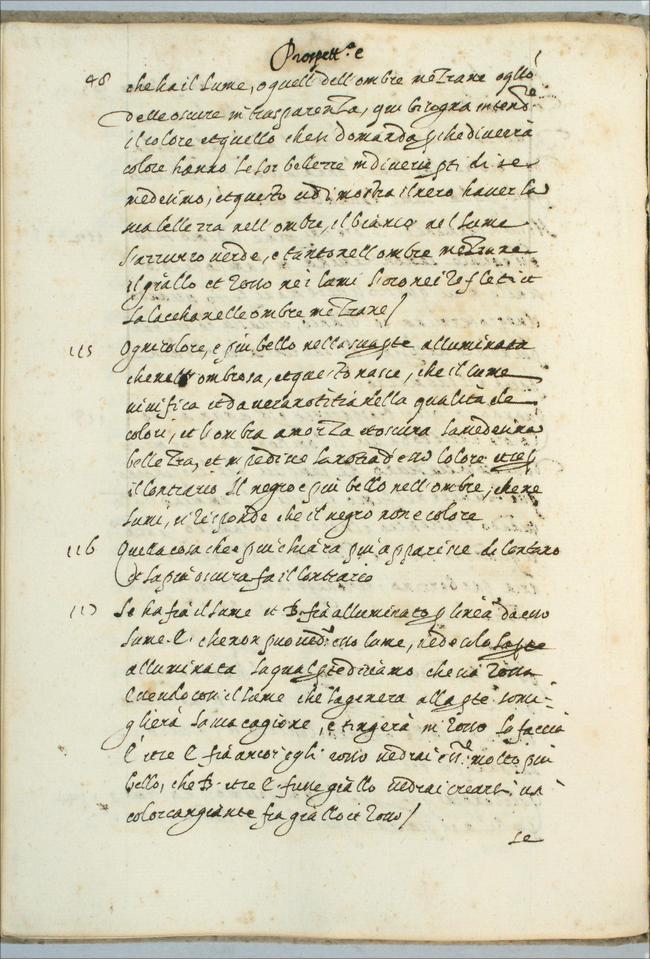 Prospett.ª e
48
che ha il lume, o quell dell'ombre mezzane o gl'lo
delle oscure in trasparenza, qui bisogna intendʳᵉ
il colore et quello che si domanda p che diversi
colore hanno le lor bellezze in diverse pti di se
medesimo, et questo ci dimostra il nero haver la
sua bellezza nell'ombre, il bianco nel lume
l'azzurro verde, e tanto nell'ombre mezzane
il giallo et rosso nei lumi l'oro nei reflessi et
la laccha nelle ombre mezzane /
115 Ogni colore, e piu bello nella sua pte alluminata
che nell ombrosa, et questo nasce, che il lume
vivifica et da vera notitia della qualità de
colori, et l'ombra amorza et oscura la medesima
bellezza, et impedisce la notitia d'esso colore
il contrario il negro e piu bello nell'ombre, che ne
lumi, si risponde che il negro non e colore
116 Quella cosa che e piu chiara piu apparisce di lontano
et la piu oscura fa il contrario
117 Se ha fra il lume et B. fia alluminato p linea da esso
lume. C. che non puo vedʳ esso lume, vede solo la pte
alluminata la qual pte diciamo che sia rossa
essendo così il lume che la genera alla pte somi-
glierà la sua cagione, e tingerà in rosso la faccia
C. et se C. fia ancor egli rosso vedrai essʳ molto piu
bello, che B. et se C. fusse giallo vedrai crearsi un
color cangiante fra giallo et rosso /
se